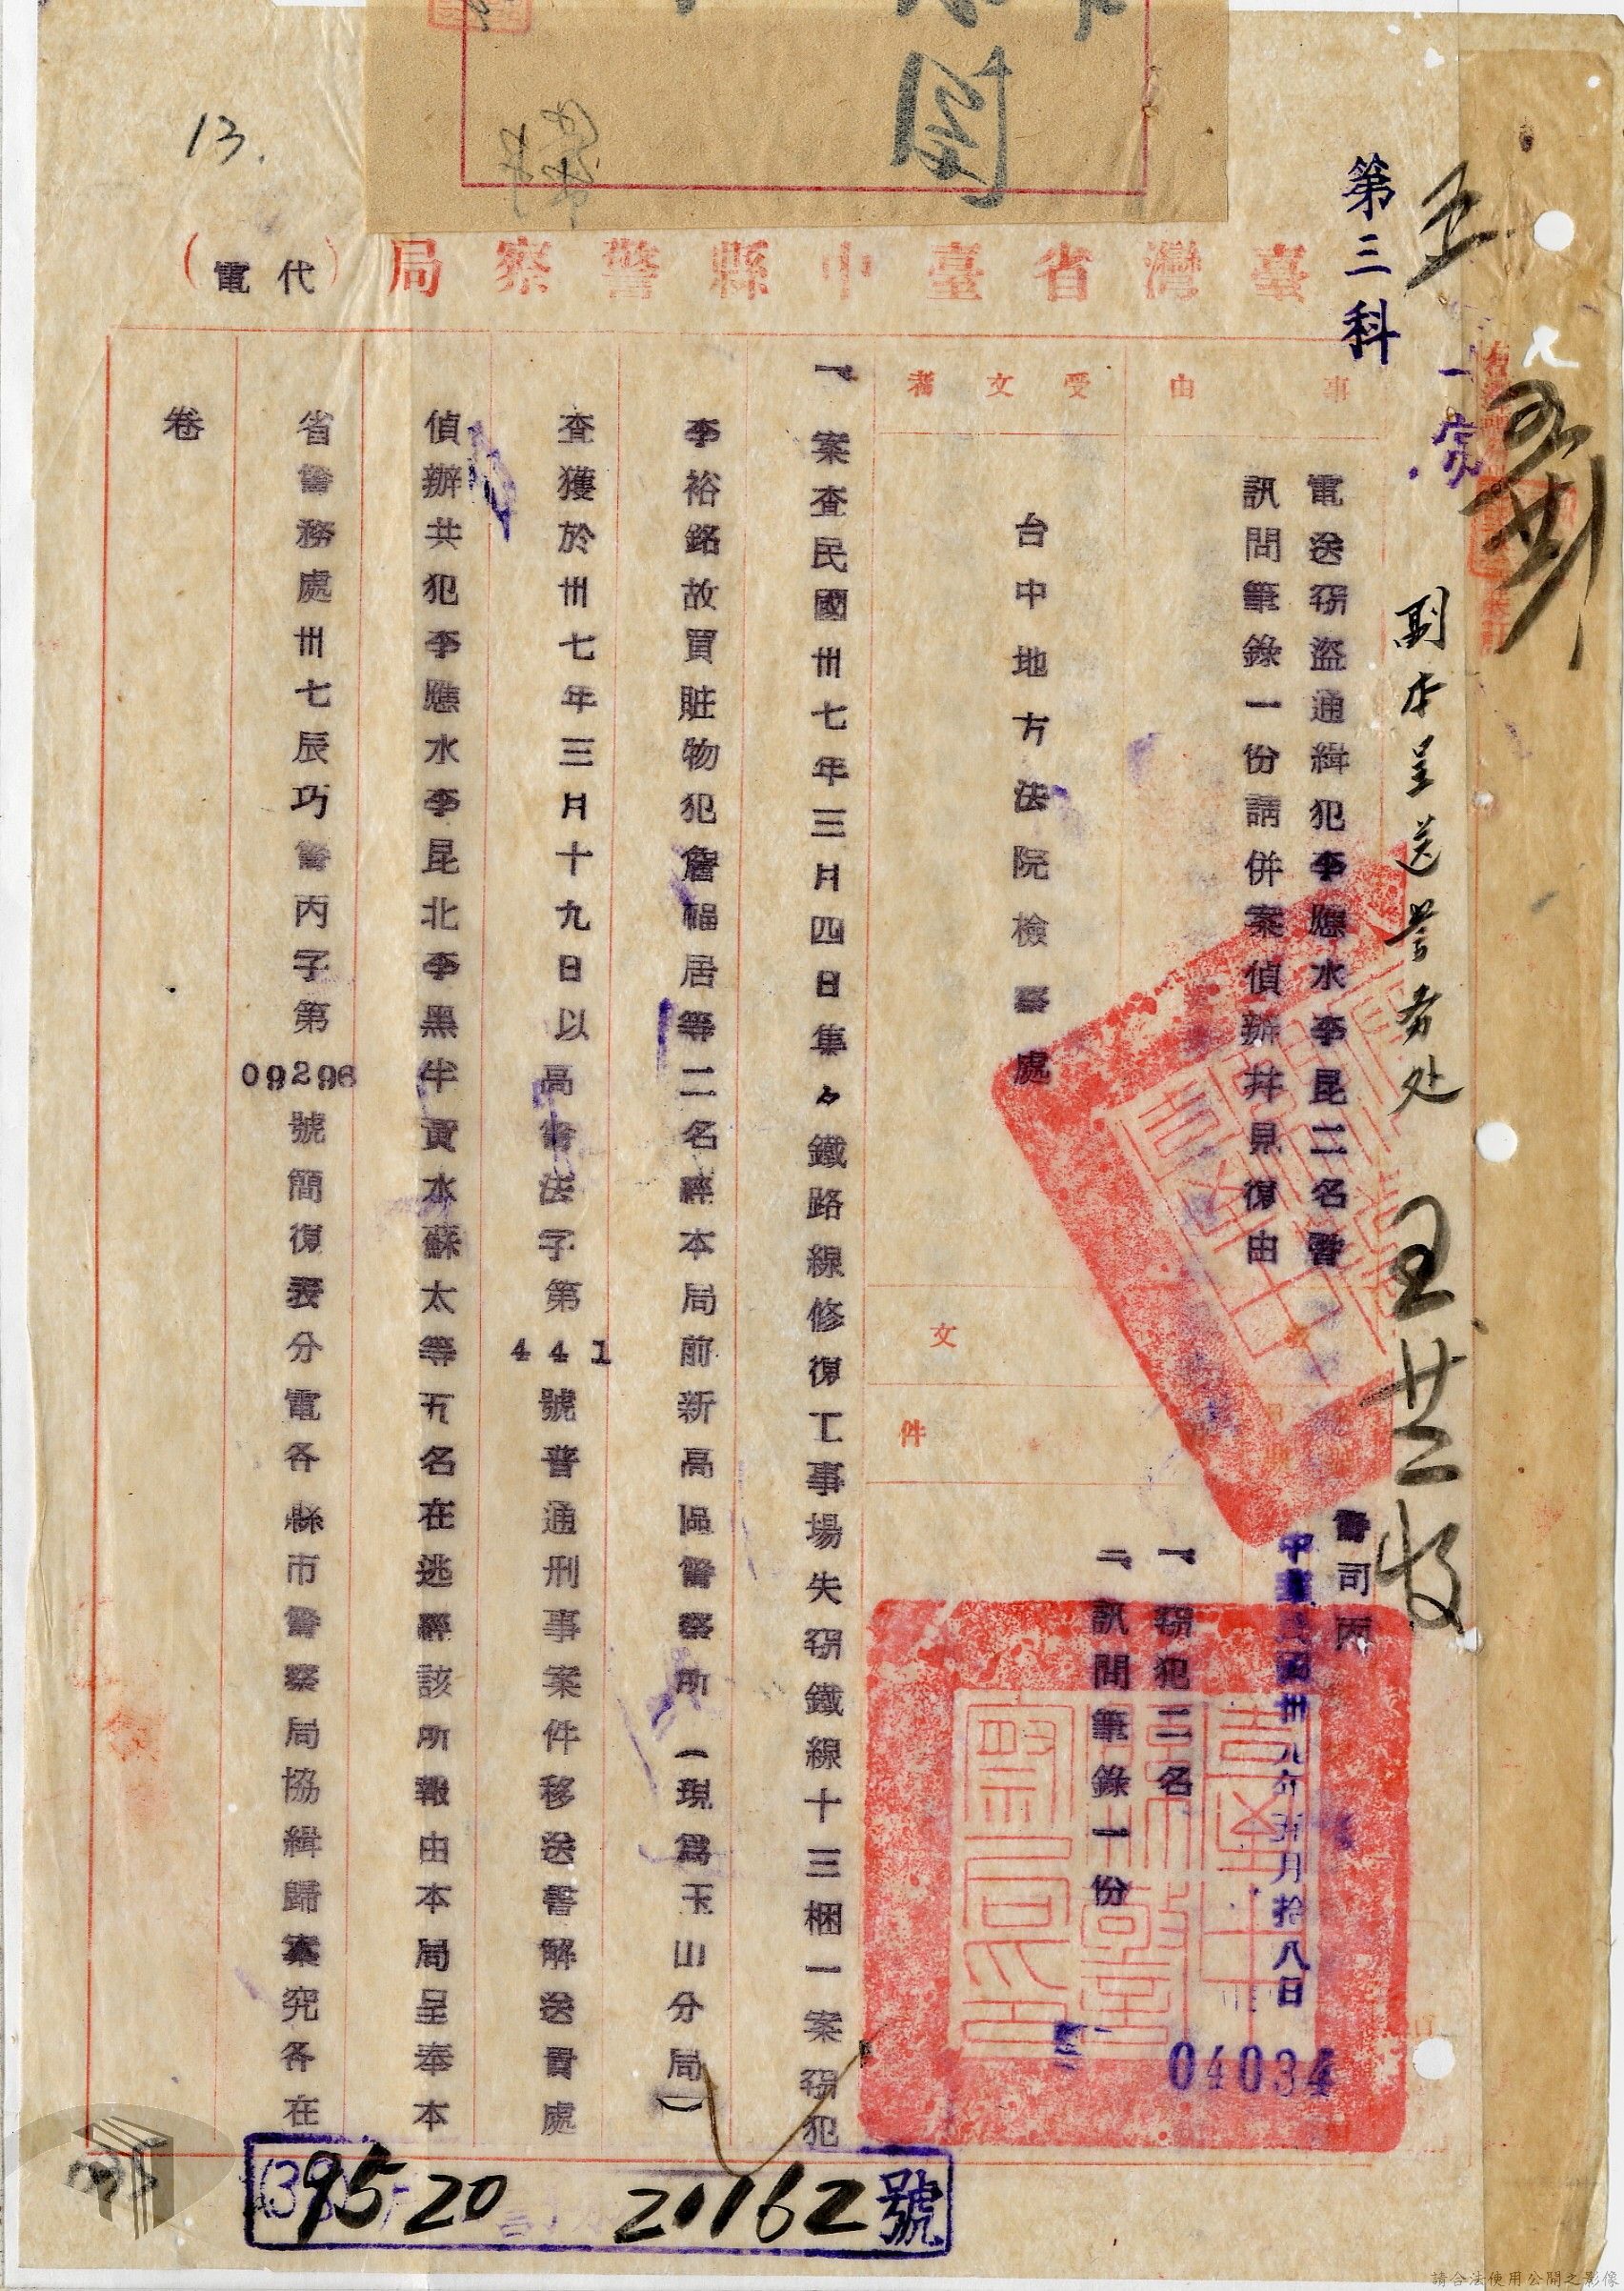 13.
第三科
副本呈送警务处
臺灣省臺中縣警察局(代電)
事由
電送竊盜通緝犯李應水李昆二名暨
訊問筆錄一份請併案偵辦并見復由
受文者
台中地方法院檢察處
文件
警司丙
中華民國卅九年五月拾八日
04034
一、竊犯二名
二、訊問筆錄一份
一、案查民國卅七年三月四日集々鐵路線修復工事場失竊鐵線十三梱一案竊犯
李裕銘故買賍物犯詹福居等二名經本局前新高區警察所(現為玉山分局)
查獲於卅七年三月十九日以高警法字第441號普通刑事案件移送書解送貴處
偵辦共犯李應水李昆北李黑半黃水蘇太等五名在逃經該所報由本局呈奉本
省警務處卅七辰巧警丙字第09296號簡復表分電各縣市警察局協緝歸案究各在
卷
9520 20162號
請合法使用公開之影像